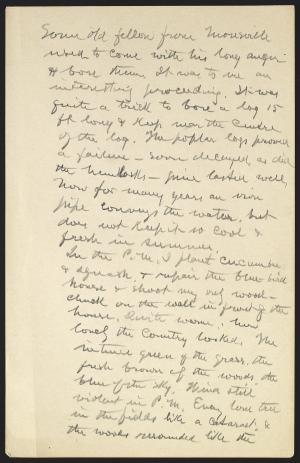 Some old fellow from Moresville
used to come with his long auger
& bore them. It was to me an
interesting proceeding. It was
quite a trick to bore a log 15
ft long & keep near the centre
of the log. The poplar logs proved
a failure — soon decayed as did
the hemlocks — pine lasted well,
Now for many years an iron
pipe conveys the water, but
does not keep it so cool &
fresh in summer.
In the P.M. I plant cucumber
& squash, & repair the blue-bird
house & shoot my out wood-
chuck on the wall in front of the
house. Quite warm; how
lovely the Country looked. The
intense green of the grass, the
fresh brown of the woods, the
blue of the sky. Wind still
violent in P.M. Every lone tree
in the fields like a cataract, &
the woods sounded like the